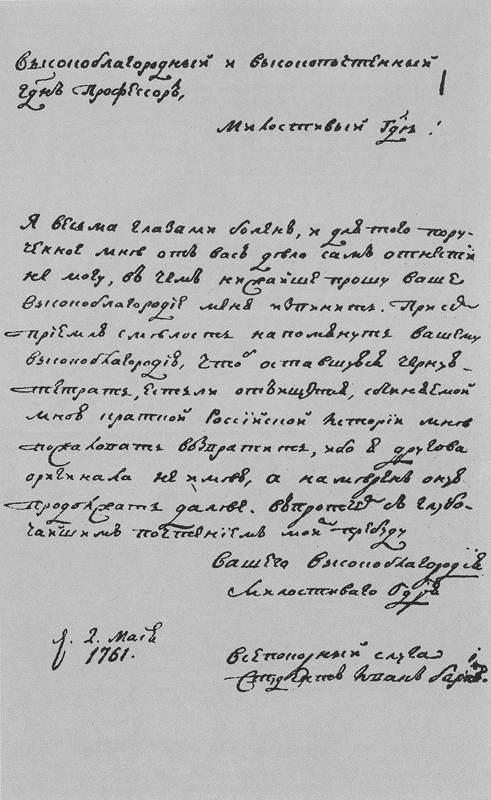 Высокоблагородный и высокопочтенный
гднъ Профессоръ,
Милостивый Гднь!
Я весьма глазами боленъ, и для того пору-
ченное мнѣ отъ васъ дѣло самъ отнести
не могу, въ чемъ нижайше прошу ваше
высокоблагородіе меня извинить. При семъ
пріемлю смѣлость напомянуть вашему
высокоблагородію, что оставшуюся черную
тетрать, естьли отыщится, сочиняемой
мною краткой Россійской Исторіи мнѣ
пожаловать возвратить, ибо я другова
оригинала не имѣю, а намѣренъ оную
продолжать далѣе. Въпротчемъ съ глубо-
чайшимъ почтеніемъ мой пребуду
Вашего Высокоблагородія
Милостиваго Гдря
2. Маія
1761.
всепокорный слуга
Студентъ Иванъ Барковъ.